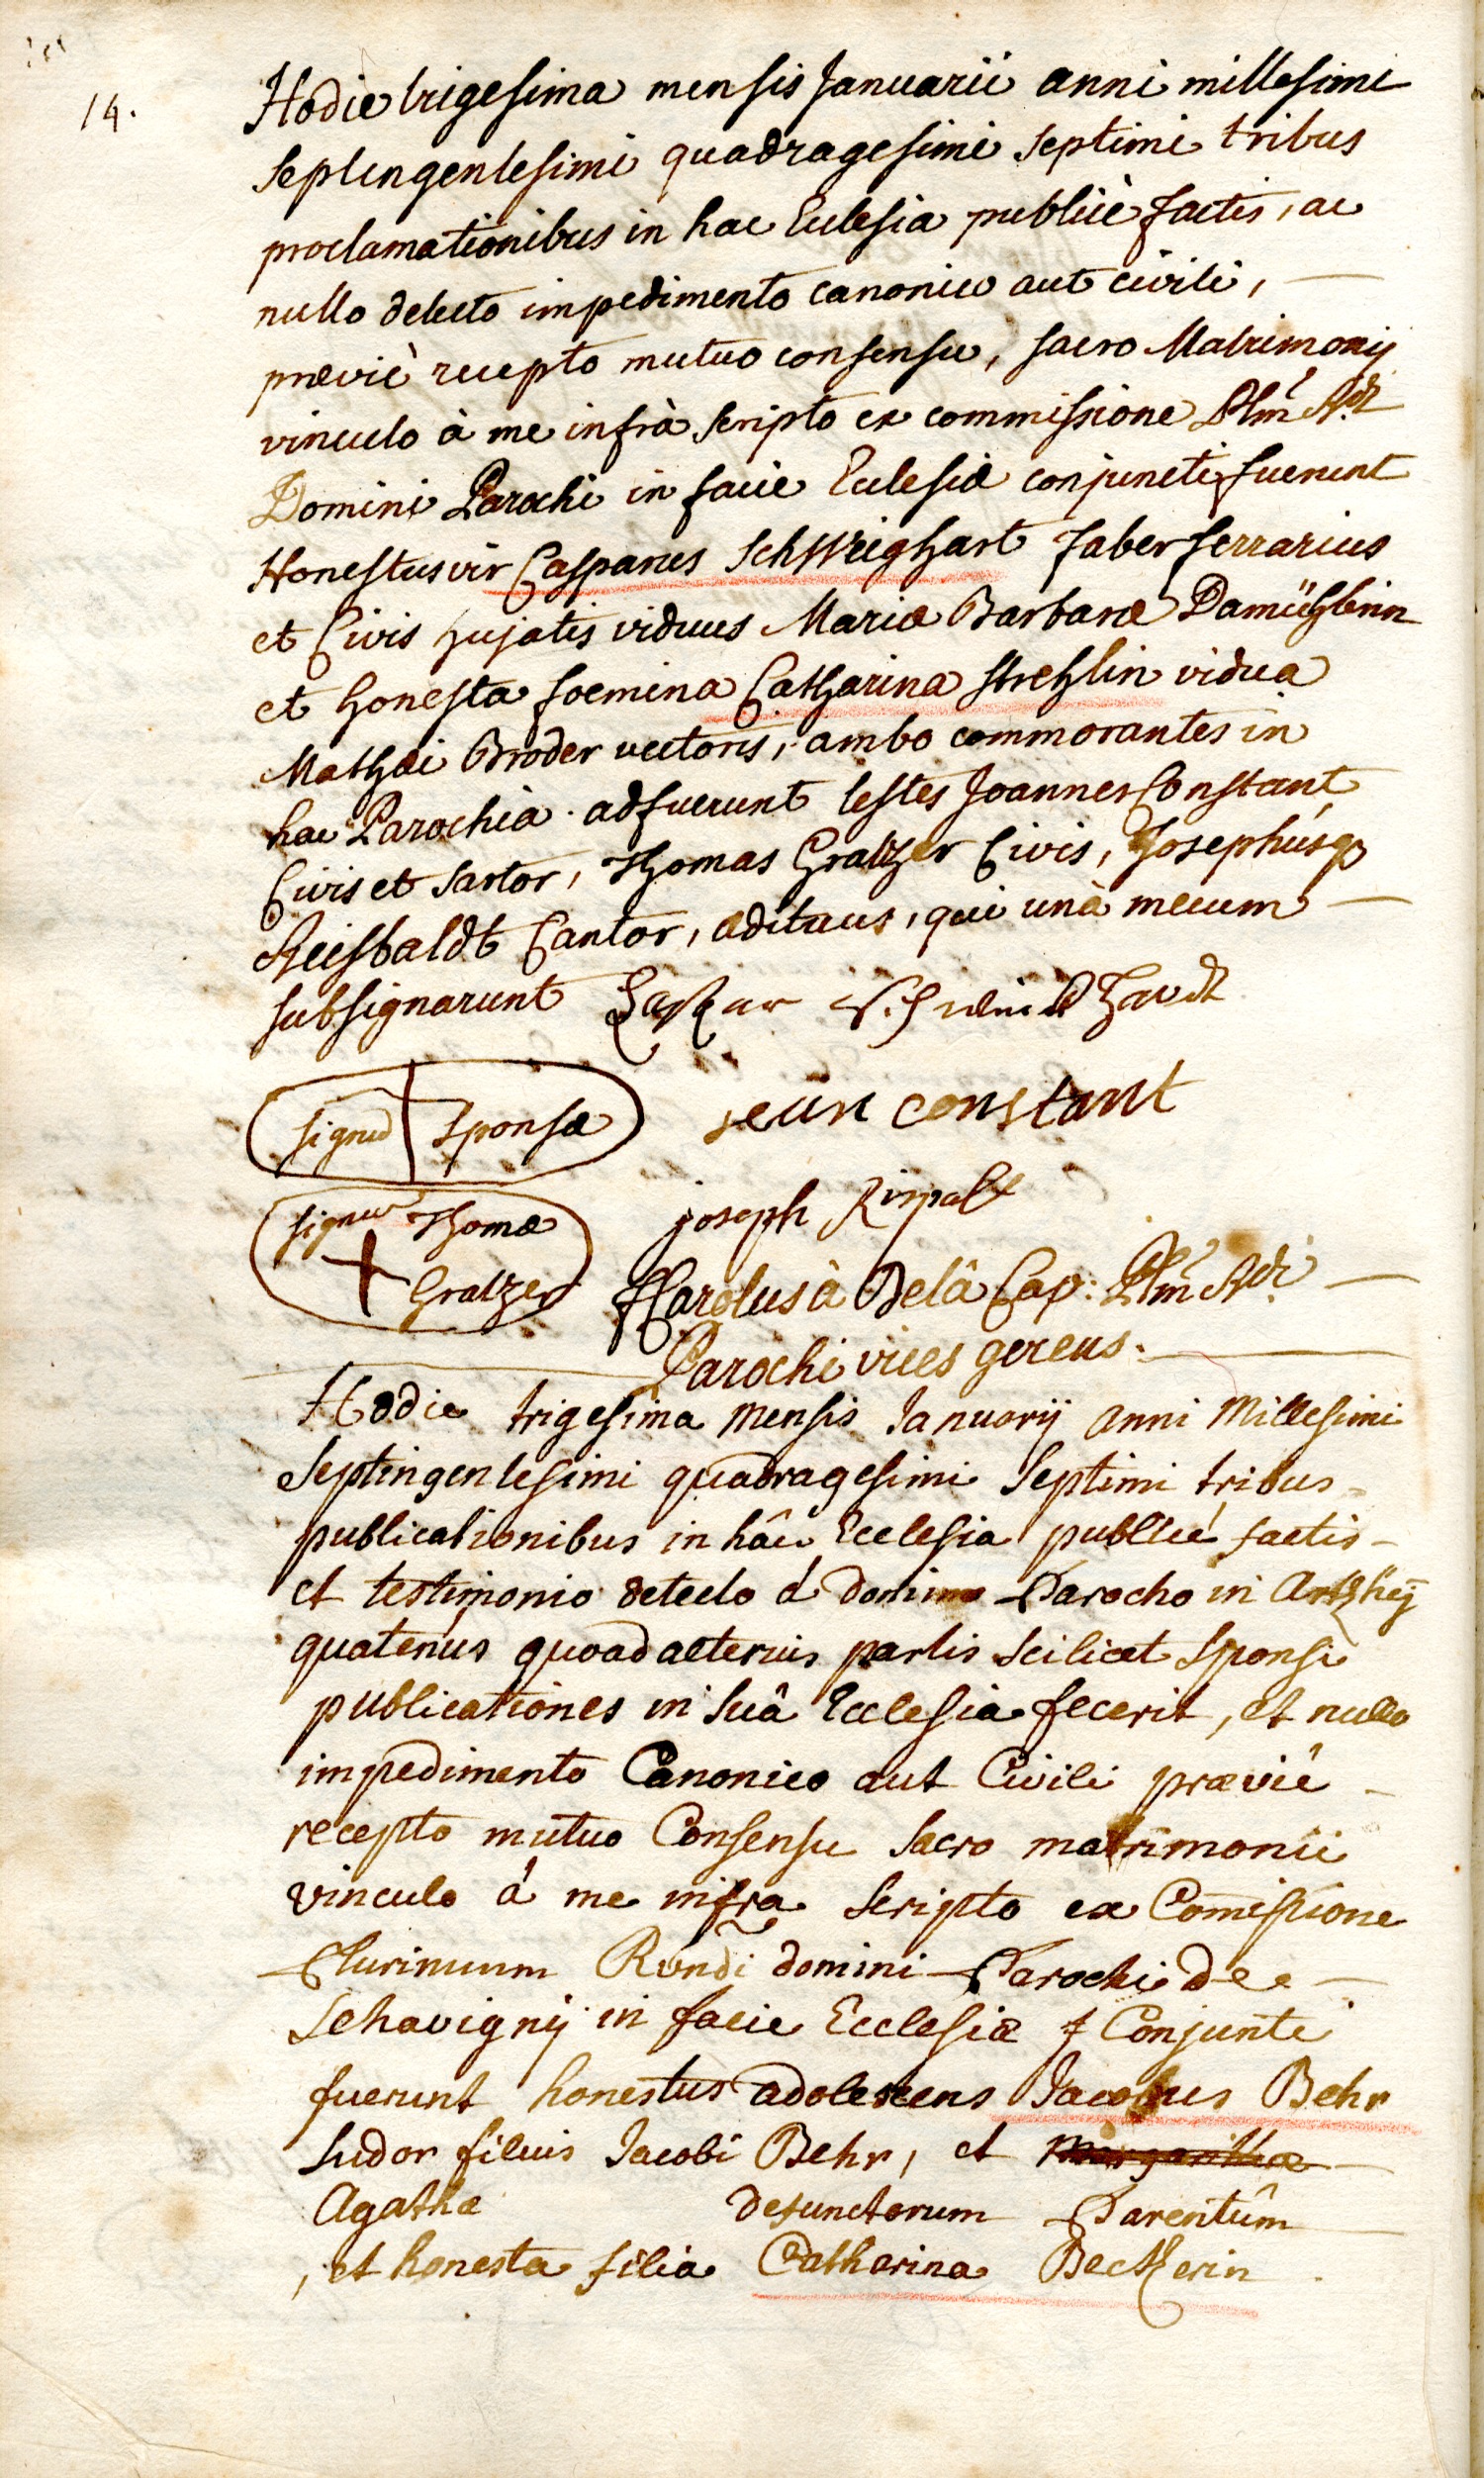 14.
Hodie trigesima mensis Januarii anni millesimi
septingentesimi quadragesimi septimi tribus
proclamationibus in hac Ecclesia publicè factis, ac
nullo detecto impedimento canonico aut civili, —
praeviè recepto mutuo consensu, sacro Matrimonij
vinculo à me infrà scripto ex commissione Plm̃ Rdi
Domini Parochi in facie Ecclesiae conjuncti fuerunt
Honestus vir Casparus Schweighart faber ferrarius
et Civis hujatis viduus Mariae Barbarae Damühlerin
et honesta foemina Catharina Strehlin vidua
Mathaei Broder vectoris, ambo commorantes in
hac Parochiâ. adfuerunt testes Joannes Constant
Civis et sartor, Thomas Gratzer Civis, Josephusq3
Reisbaldt Cantor, aedituus, qui unà mecum —
subsignarunt Caspar Schweickhardt
signũ sponsae
jean constant
signũ Thomae
Gratzer
joseph Rispalt
F Carolus à Delâ Cap: Plm̃ Rdi —
Parochi vices gerens. —
Hodie trigesima mensis Januarij anni Millesimi
Septingentesimi quadragesimi Septimi tribus
publicationibus in hâc Ecclesia publicé factis
et testimonio detecto á domino Parocho in Artzhej
quatenus quoad alterius partis scilicet Sponsi
publicationes in suâ Ecclesia fecerit, et nullo
impedimento Canonico aut Civili praeviê
recepto mutuo Consensu sacro matrimonii
vinculo á me infra scripto ex Comissione
Plurimum Rvndi domini Parochi de —
Schavignij in facie Ecclesiae Conjuncti
fuerunt honestus adolescens Jacobus Behr
sudor filius Jacobi Behr, et Margarithae
Agathae defunctorum Parentûm
, et honesta filia Catharina Beckerin